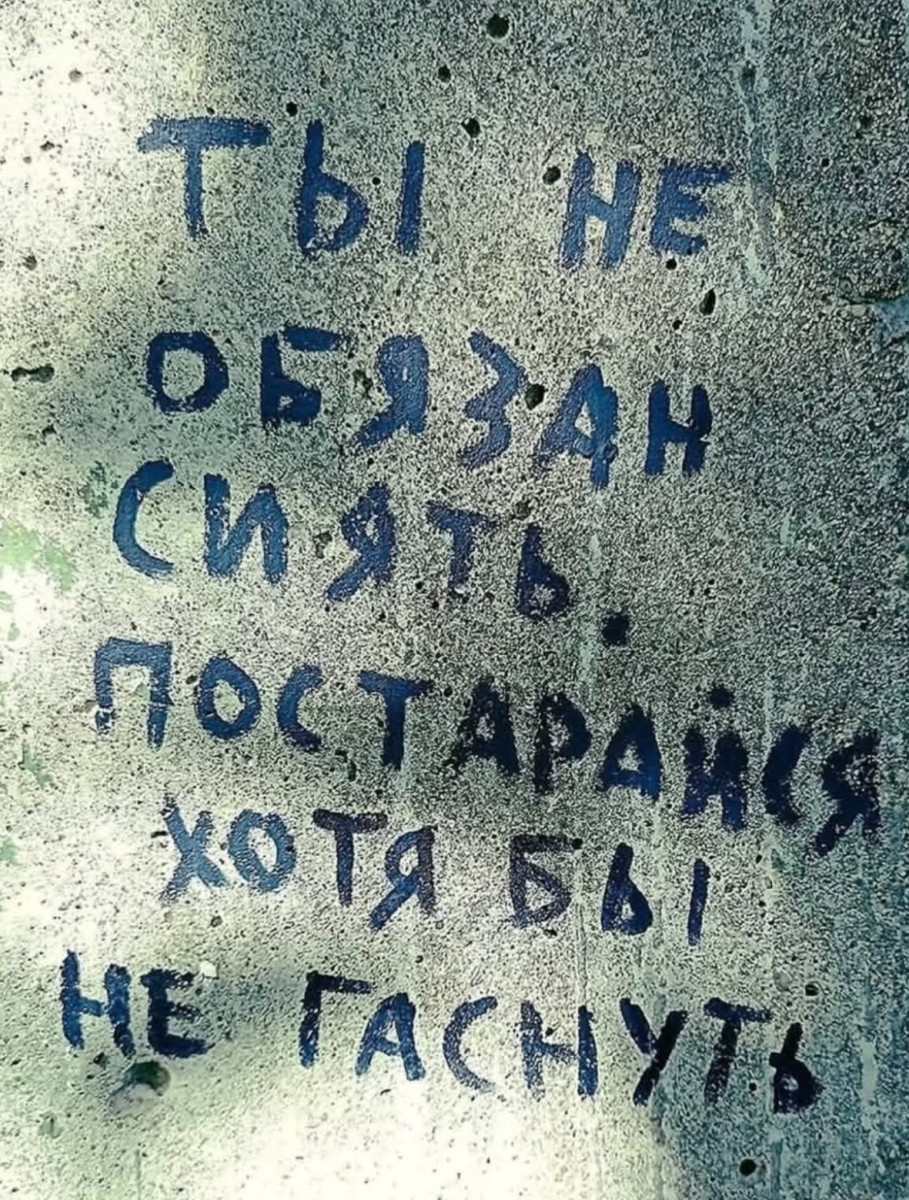 ТЫ НЕ
ОБЯЗАН
СИЯТЬ.
ПОСТАРАЙСЯ
ХОТЯ БЫ
НЕ ГАСНУТЬ